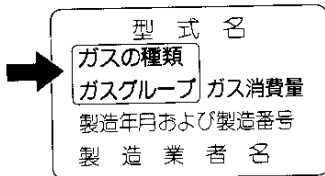 型式名
ガスの種類
ガスグループ ガス消費量
製造年月および製造番号
製造業者名